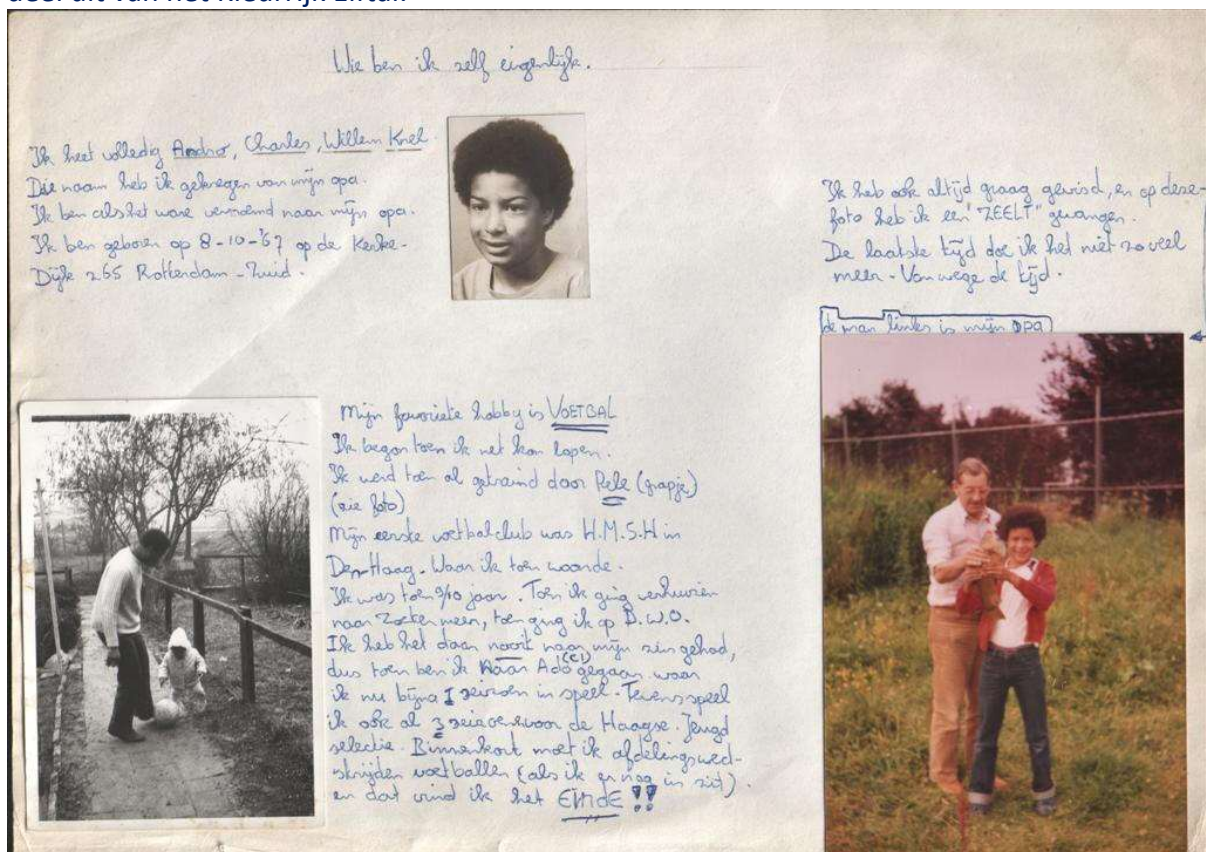 deel uit van het kleurrijk elftal.
Wie ben ik zelf eigenlijk.
Ik heet volledig Andro, Charles, Willem Knel.
Die naam heb ik gekregen van mijn opa.
Ik ben als het ware vernoemd naar mijn opa.
Ik ben geboren op 8-10-'67 op de Kerke-
Dijk 265 Rotterdam - Zuid.
Ik heb ook altijd graag gevisd, en op deze
foto heb ik een "ZEELT" gevangen.
De laatste tijd doe ik het niet zo veel
meer - Van wege de tijd.
de man links is mijn opa
Mijn favoriete hobby is VOETBAL
Ik begon toen ik net kon lopen.
Ik werd toen al getraind door Pele (grapje)
(zie foto)
Mijn eerste voetbalclub was H.M.S.H in
Den-Haag. Waar ik toen woonde.
Ik was toen 9/10 jaar. Toen ik ging verhuizen
naar Zoetermeer, toen ging ik op B.W.O.
Ik heb het daar nooit naar mijn zin gehad,
dus toen ben ik naar Ado gegaan waar
ik nu bijna 1 seizoen in speel. Tevens speel
ik ook al 3 voor de Haagse Jeugd
selectie. Binnenkort moet ik afdelingswed-
strijden voetballen (als ik er nog in zit)
en dat vind ik het EINDE !!